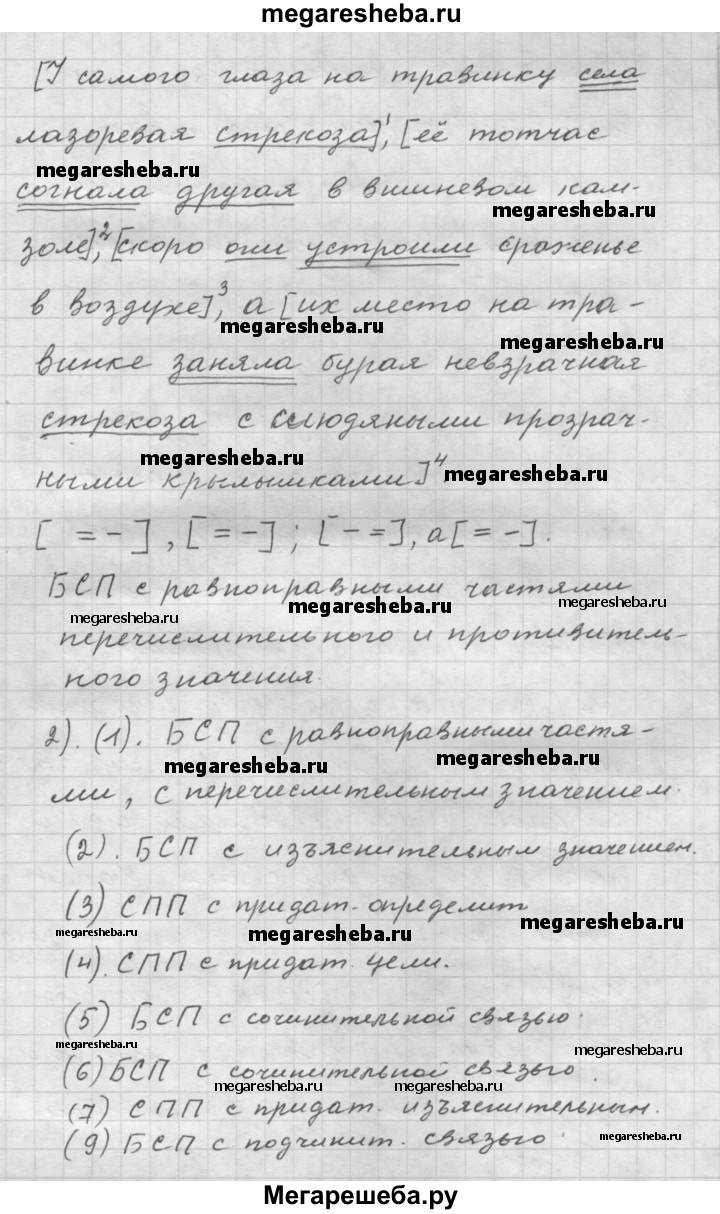 megaresheba.ru
[У самого глаза на травинку села
лазоревая стрекоза]¹, [её тотчас
megaresheba.ru
согнала другая в вишневом кам-
megaresheba.ru
золе]², [скоро они устроили сраженье
в воздухе]³, а [их место на тра-
megaresheba.ru
megaresheba.ru
винке заняла бурая невзрачная
стрекоза с слюдяными прозрач-
megaresheba.ru
ными крылышками]⁴
megaresheba.ru
[ = – ] , [ = – ] ; [ – = ], а [ = – ].
БСП с равноправными частями
megaresheba.ru
megaresheba.ru
megaresheba.ru
перечислительного и противитель-
ного значения.
2). (1). БСП с равноправными частя-
megaresheba.ru
megaresheba.ru
ми, с перечислительным значением.
(2). БСП с изъяснительным значением.
(3) СПП с придат. определит
megaresheba.ru
megaresheba.ru
megaresheba.ru
(4). СПП с придат. цели.
(5) БСП с сочинительной связью.
megaresheba.ru
megaresheba.ru
(6) БСП с сочинительной связью.
megaresheba.ru
megaresheba.ru
(7) СПП с придат. изъяснительным.
(9) БСП с подчинит. связью.
megaresheba.ru
Мегарешеба.ру